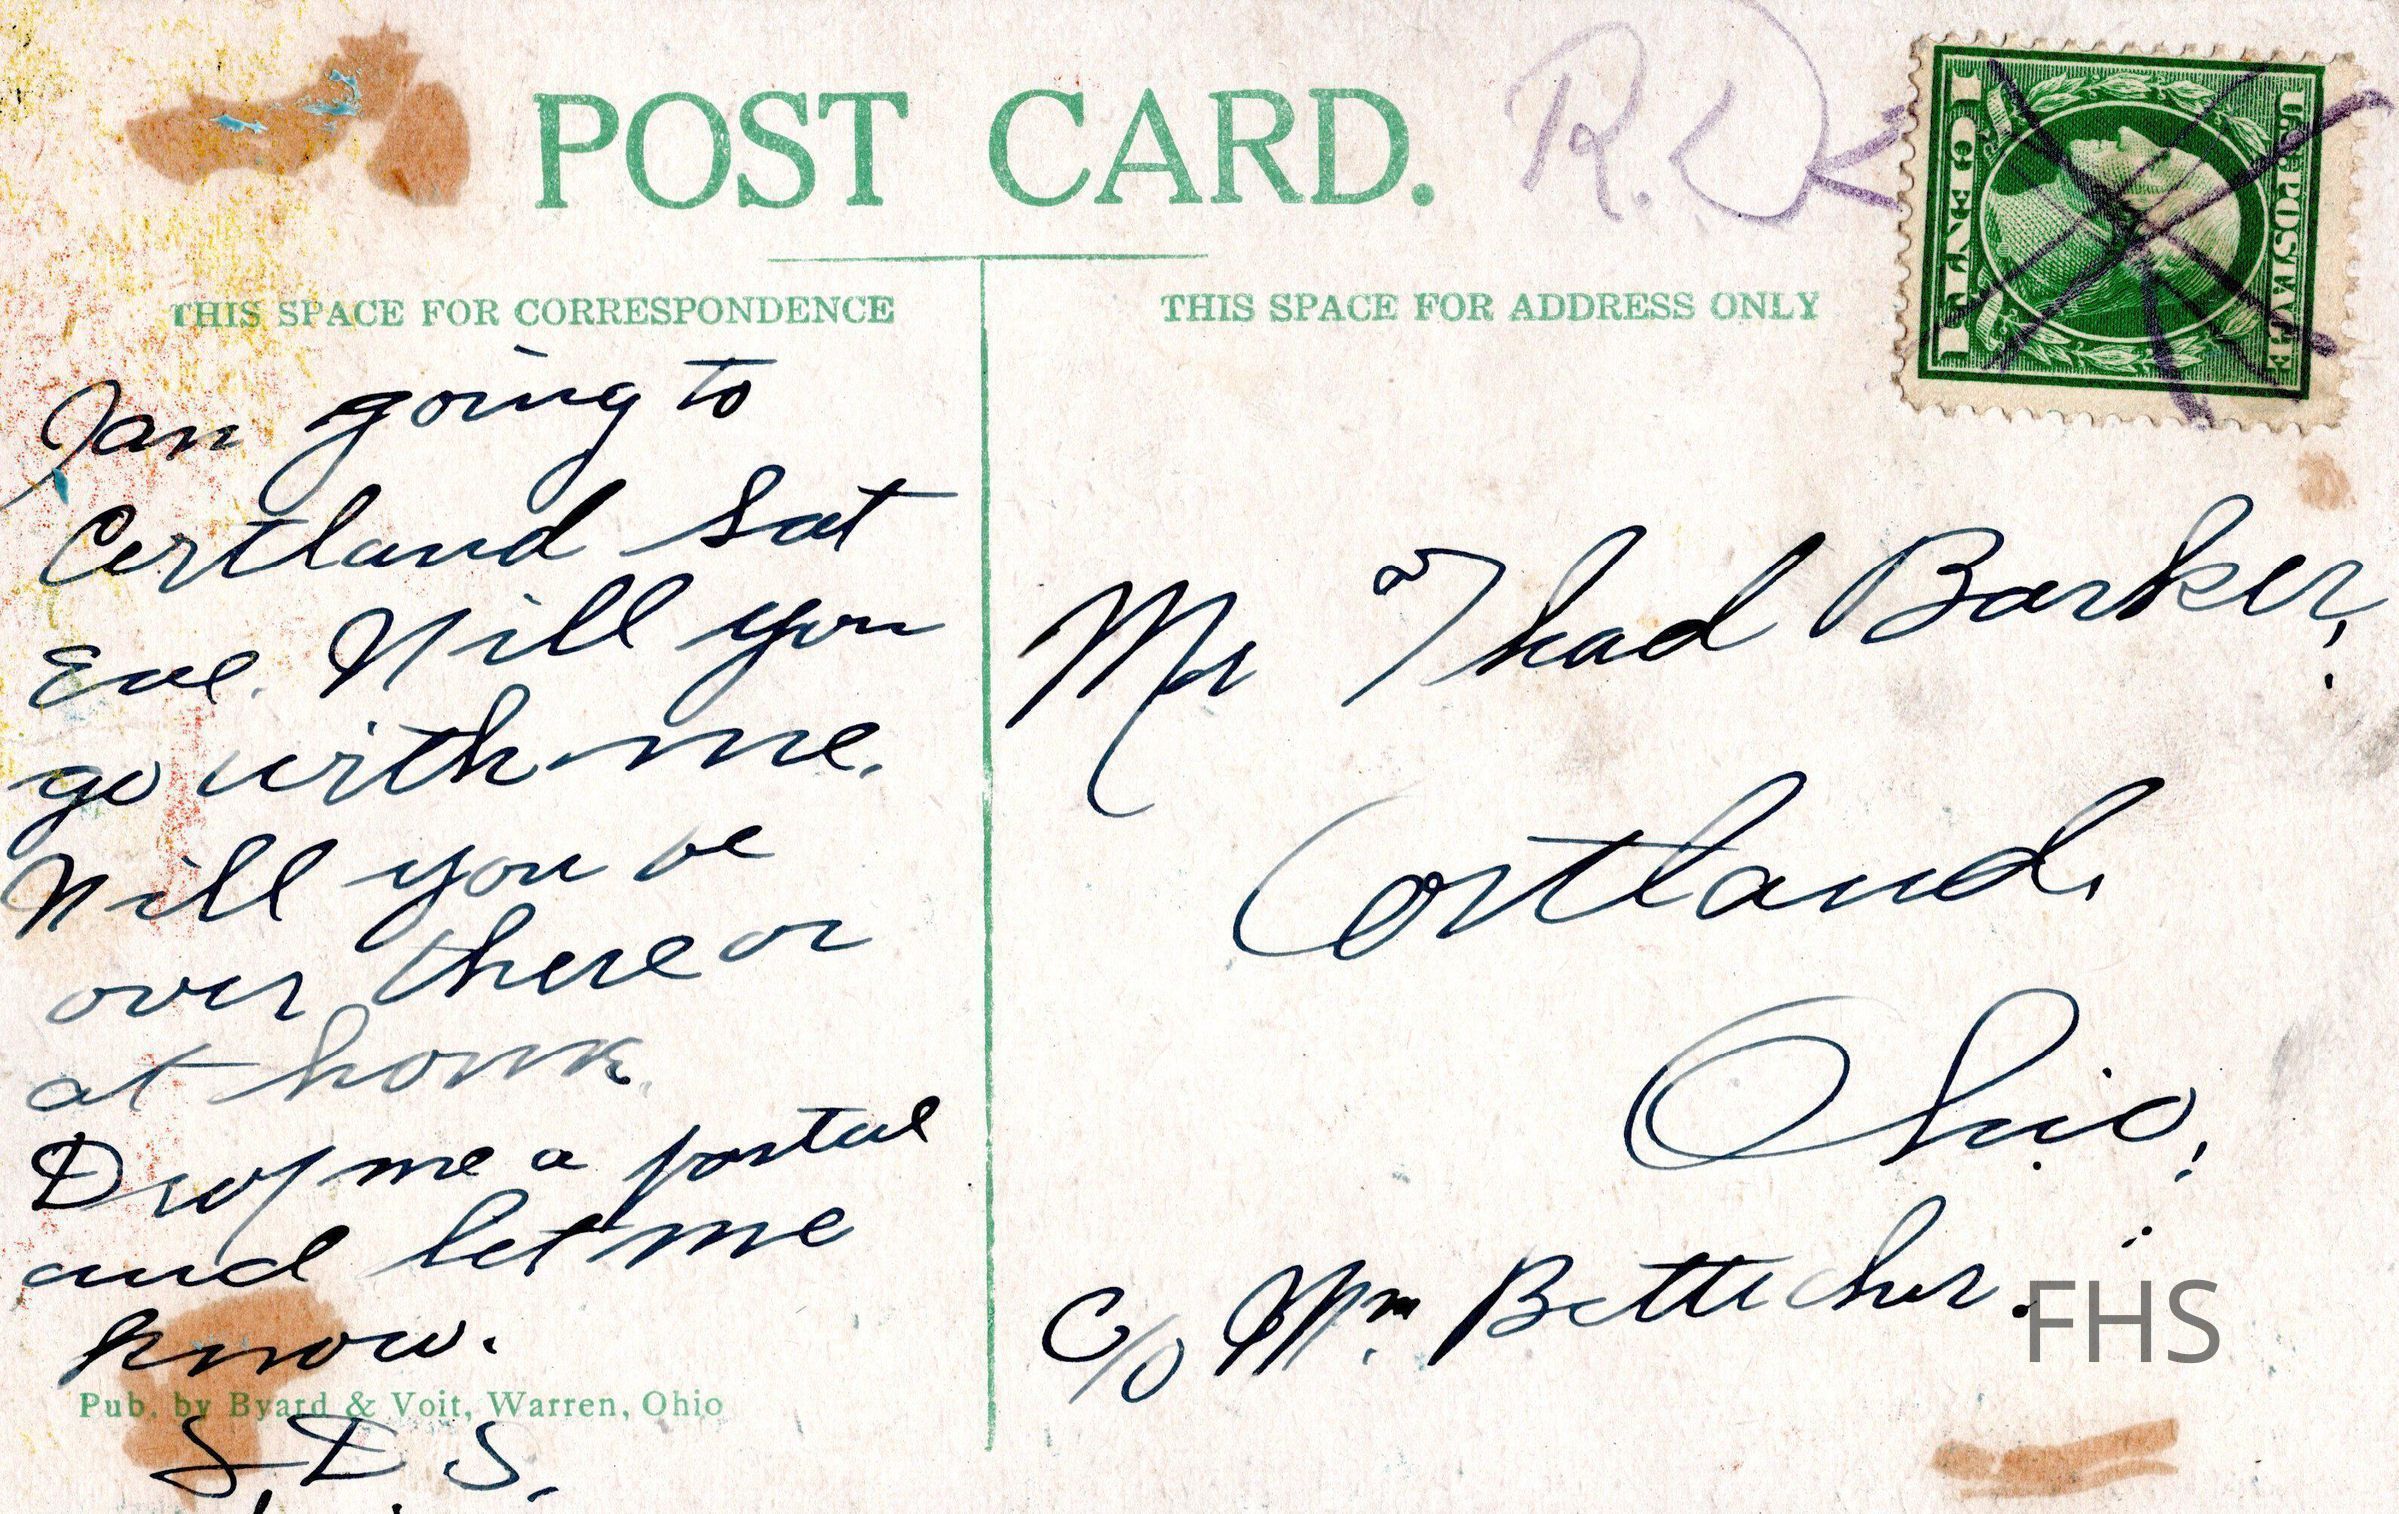 POST CARD.
R. D
U.S. POSTAGE
1 ONE CENT 1
THIS SPACE FOR CORRESPONDENCE
I am going to
Cortland Sat
Eve. Will you
go with me.
Will you be
over there or
at home.
Drop me a postal
and let me
know.
Pub. by Byard & Voit, Warren, Ohio
S. D. S.
THIS SPACE FOR ADDRESS ONLY
Mr Thad Barker,
Cortland,
Ohio,
c/o Wm Betticher.
FHS